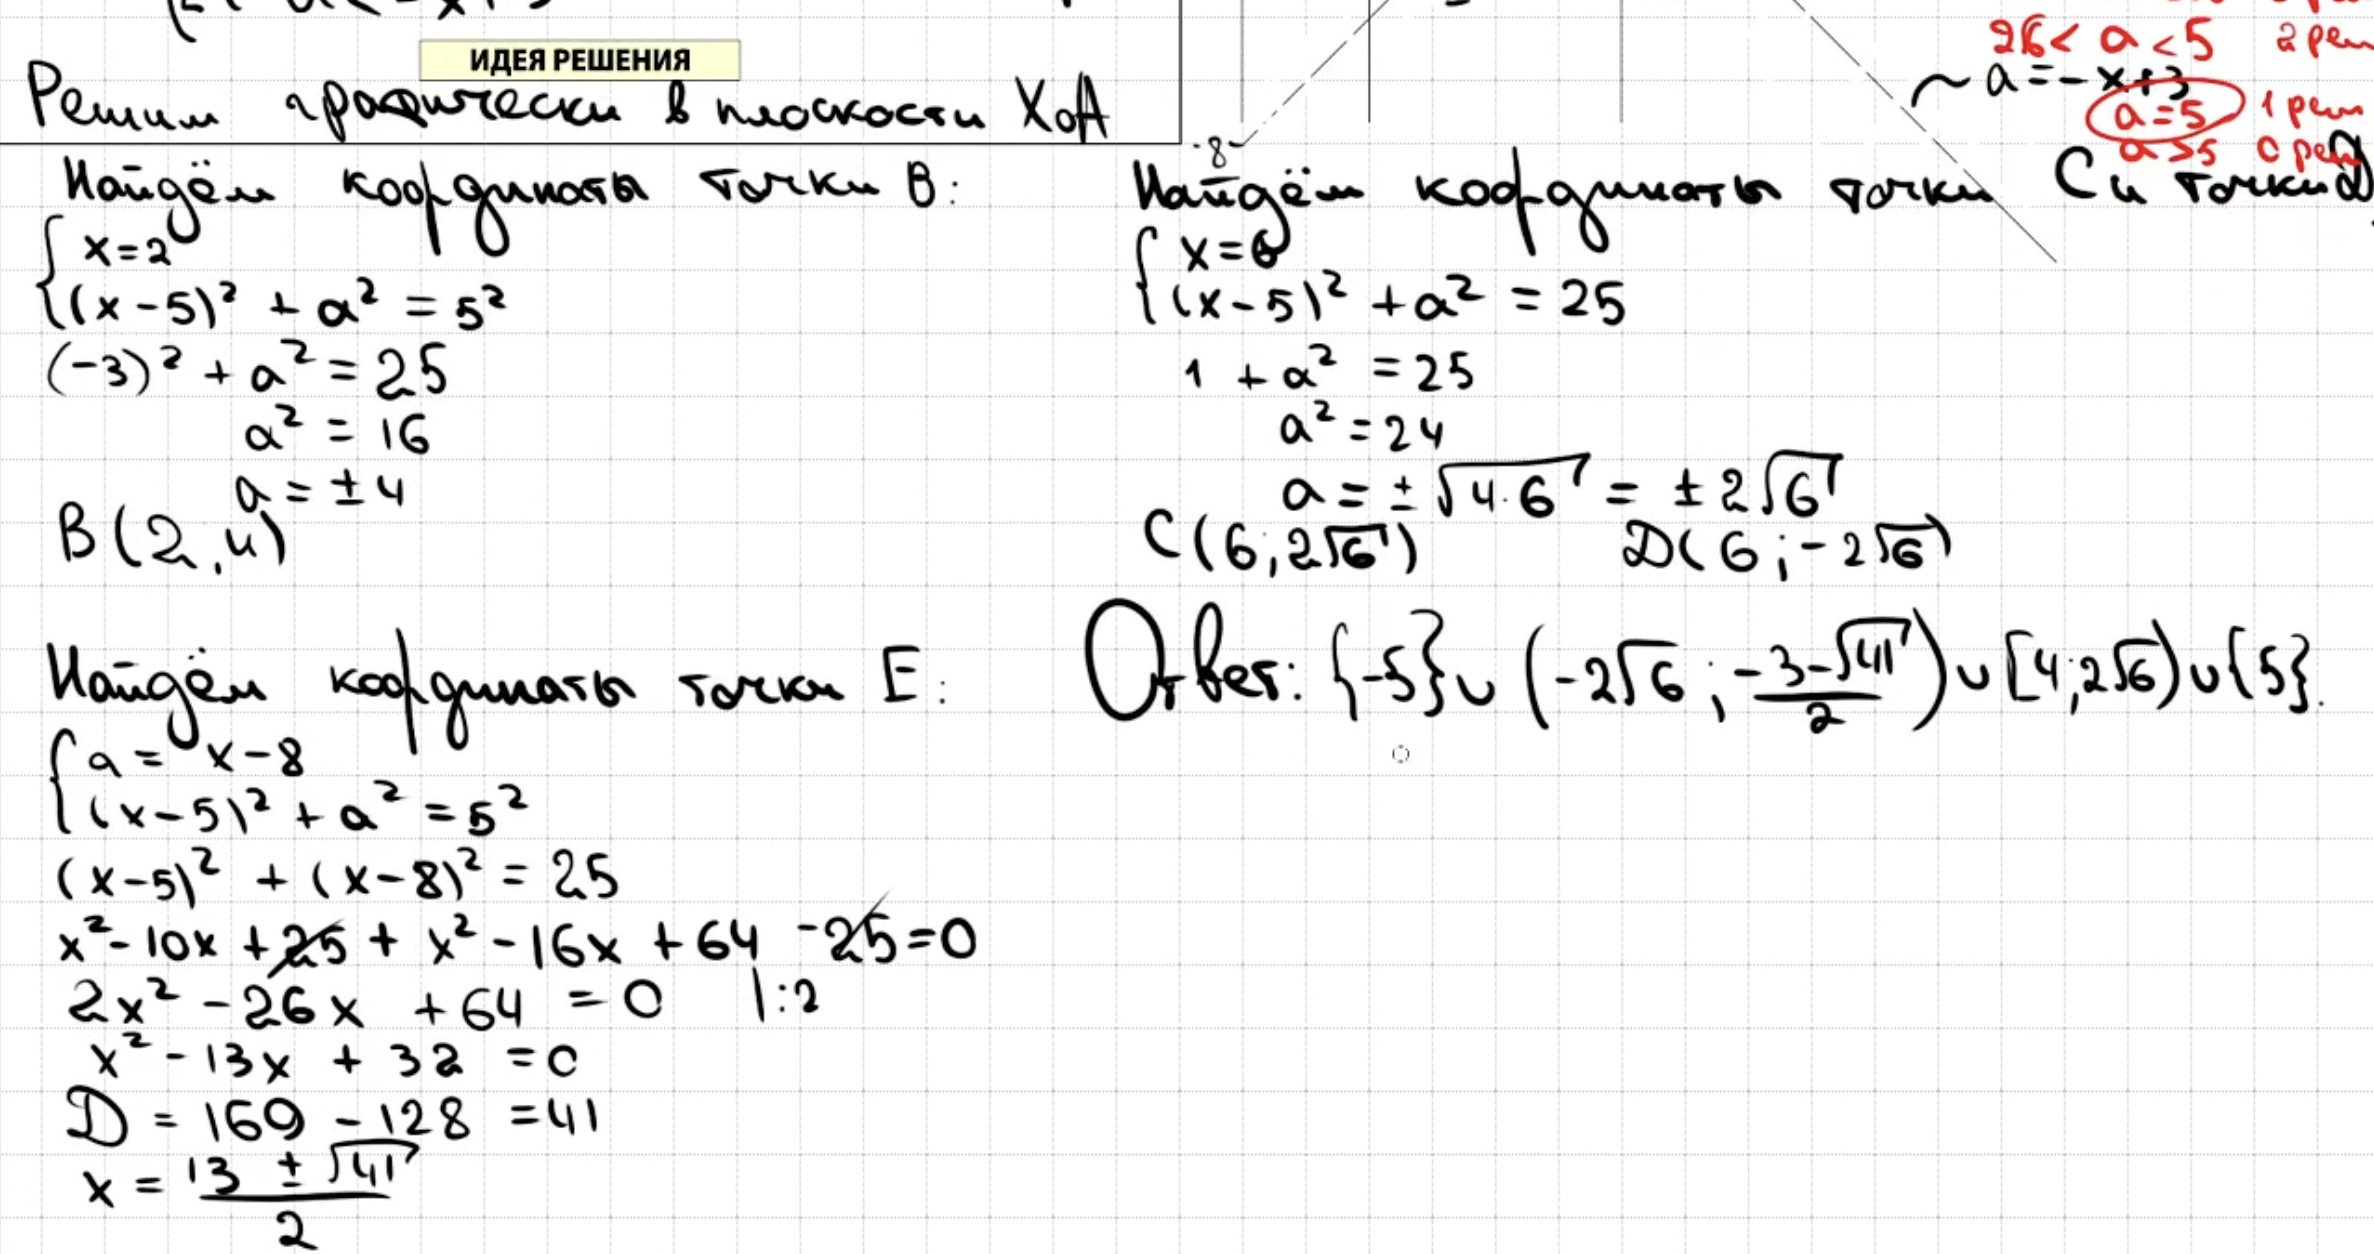 ИДЕЯ РЕШЕНИЯ
Решим графически в плоскости XoA
-8
2√6 < a < 5 2 реш
a = -x+3
a = 5 1 реш
a > 5 0 реш
Найдём координаты точки B:
x = 2
(x-5)² + a² = 5²
(-3)² + a² = 25
a² = 16
a = ±4
B(2;4)
Найдём координаты точки C и точки D
x = 6
(x-5)² + a² = 25
1 + a² = 25
a² = 24
a = ±√4·6 = ±2√6
C(6;2√6) D(6;-2√6)
Найдём координаты точки E:
a = x-8
(x-5)² + a² = 5²
(x-5)² + (x-8)² = 25
x² - 10x + 25 + x² - 16x + 64 - 25 = 0
2x² - 26x + 64 = 0 |:2
x² - 13x + 32 = 0
D = 169 - 128 = 41
x = (13 ± √41)/2
Ответ: {-5} ∪ (-2√6; (-3-√41)/2) ∪ [4;2√6) ∪ {5}.